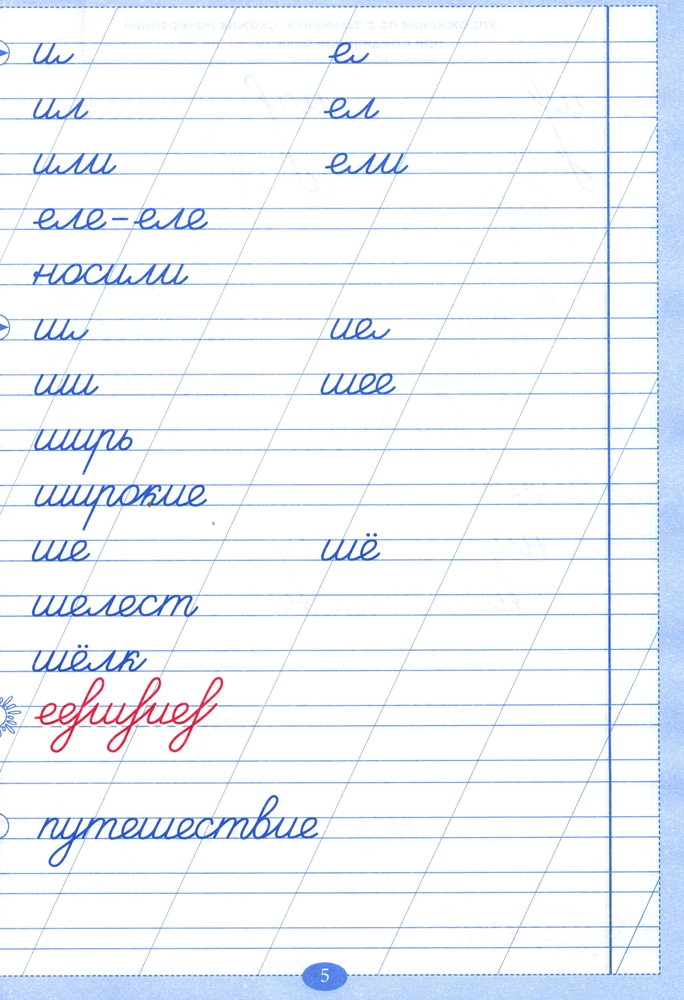 ил ел
или ели
еле-еле
носили
ши шее
ширь
широкие
ше шё
шелест
шёлк
путешествие
5